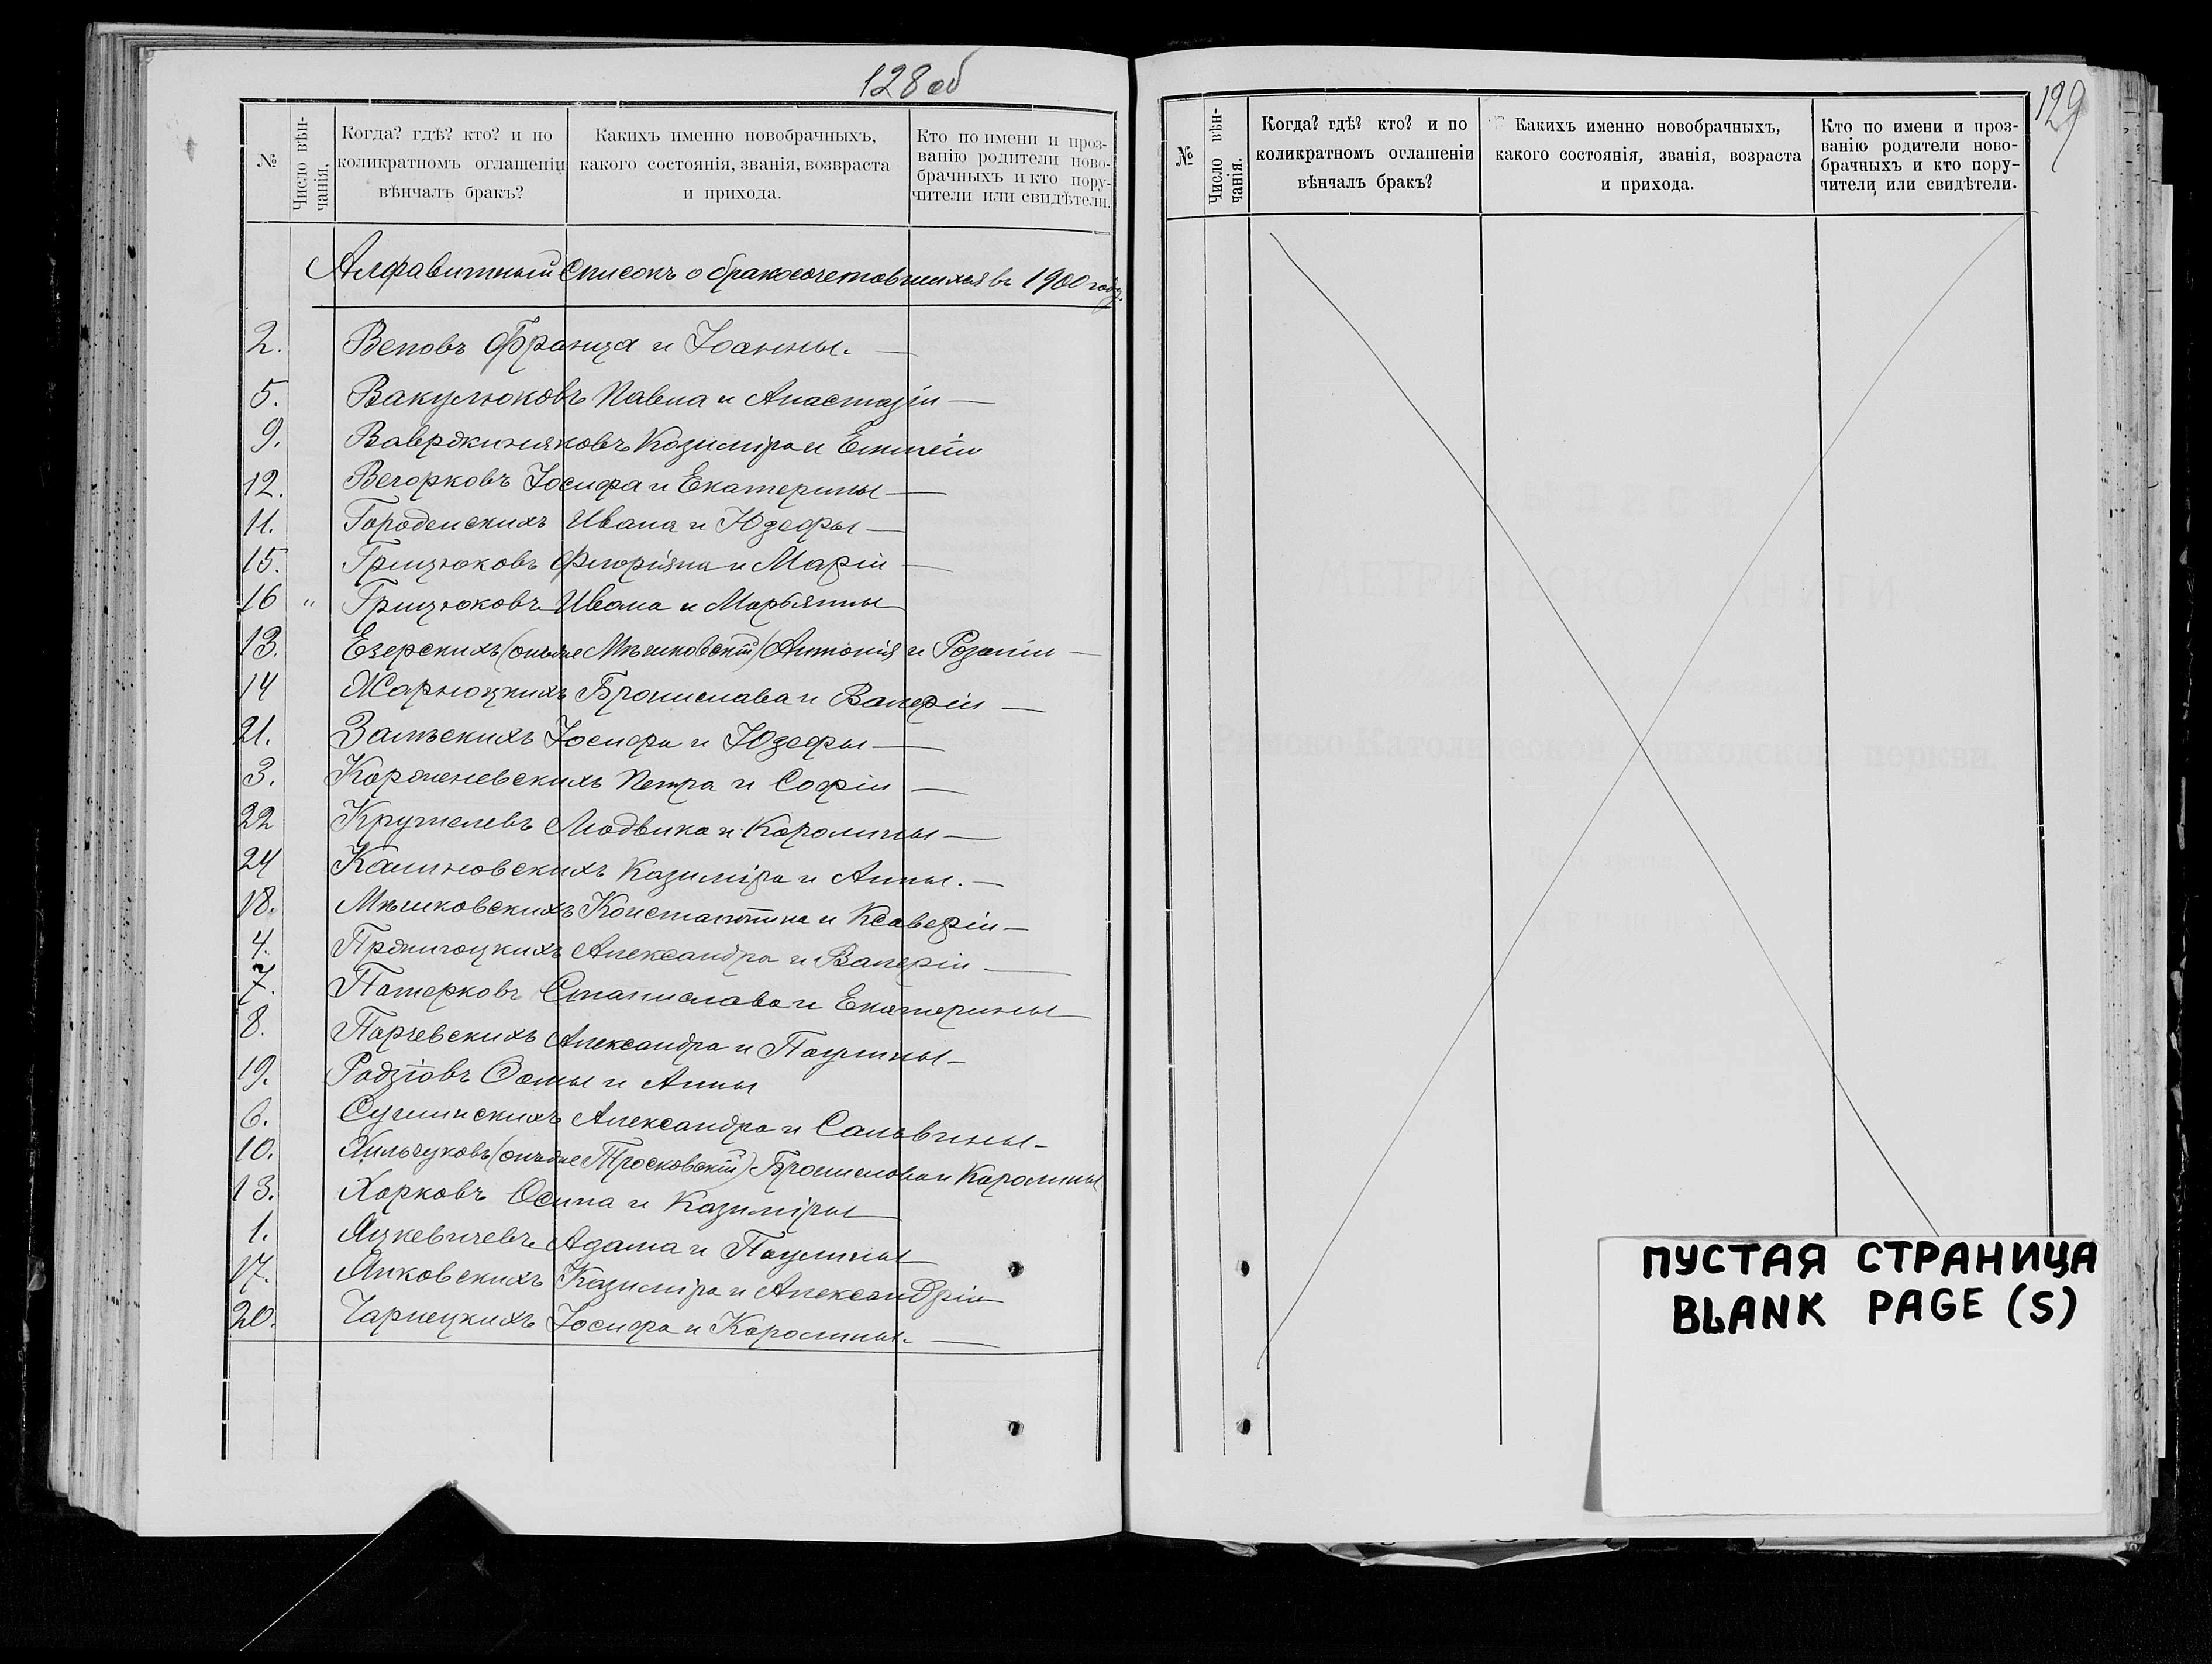 128 об
№
Число вѣн-
чанія.
Когда? гдѣ? кто? и по
коликратномъ оглашеніи
вѣнчалъ бракъ?
Какихъ именно новобрачныхъ,
какого состоянія, званія, возвраста
и прихода.
Кто по имени и проз-
ванію родители ново-
брачныхъ и кто пору-
чители или свидѣтели.
Алфавитный списокъ о бракосочетовшихся въ 1900 году.
2. Веповъ Франца и Іоанны. —
5. Вакулюковъ Павла и Анастазіи —
9. Вавржиняковъ Казиміра и Емиліи
12. Вечорковъ Іосифа и Екатерины —
11. Городенскихъ Ивана и Юзефы —
15. Грицюковъ Флоріяна и Маріи —
16 " Грицюковъ Ивана и Марьянны
13. Езерскихъ (онъ же Мѣшковскій) Антонія и Розаліи —
14 Жарнюцкихъ Бронислава и Валеріи —
21. Залѣскихъ Іосифа и Юзефы —
3. Корженевскихъ Петра и Софіи —
22 Кружелевъ Людвика и Каролины —
24 Калиновскихъ Казиміра и Анны. —
18. Мѣшковскихъ Константина и Ксаверіи —
4. Пржигоцкихъ Александра и Валеріи —
7. Патерковъ Станислава и Екатерины
8. Парчевскихъ Александра и Паулины —
19. Радзіовъ Ѳомы и Анны
6. Сушинскихъ Александра и Сальвины —
10. Хильчуковъ (онъ же Тросковскій) Бронислава и Каролины
13. Харковъ Осипа и Казиміры
1. Яцкевичевъ Адама и Паулины
17. Янковскихъ Казиміра и Александріи
20. Чарнецкихъ Іосифа и Каролины. —
129
№
Число вѣн-
чанія.
Когда? гдѣ? кто? и по
коликратномъ оглашеніи
вѣнчалъ бракъ?
Какихъ именно новобрачныхъ,
какого состоянія, званія, возраста
и прихода.
Кто по имени и проз-
ванію родители ново-
брачныхъ и кто пору-
чители или свидѣтели.
ПУСТАЯ СТРАНИЦА
BLANK PAGE (S)